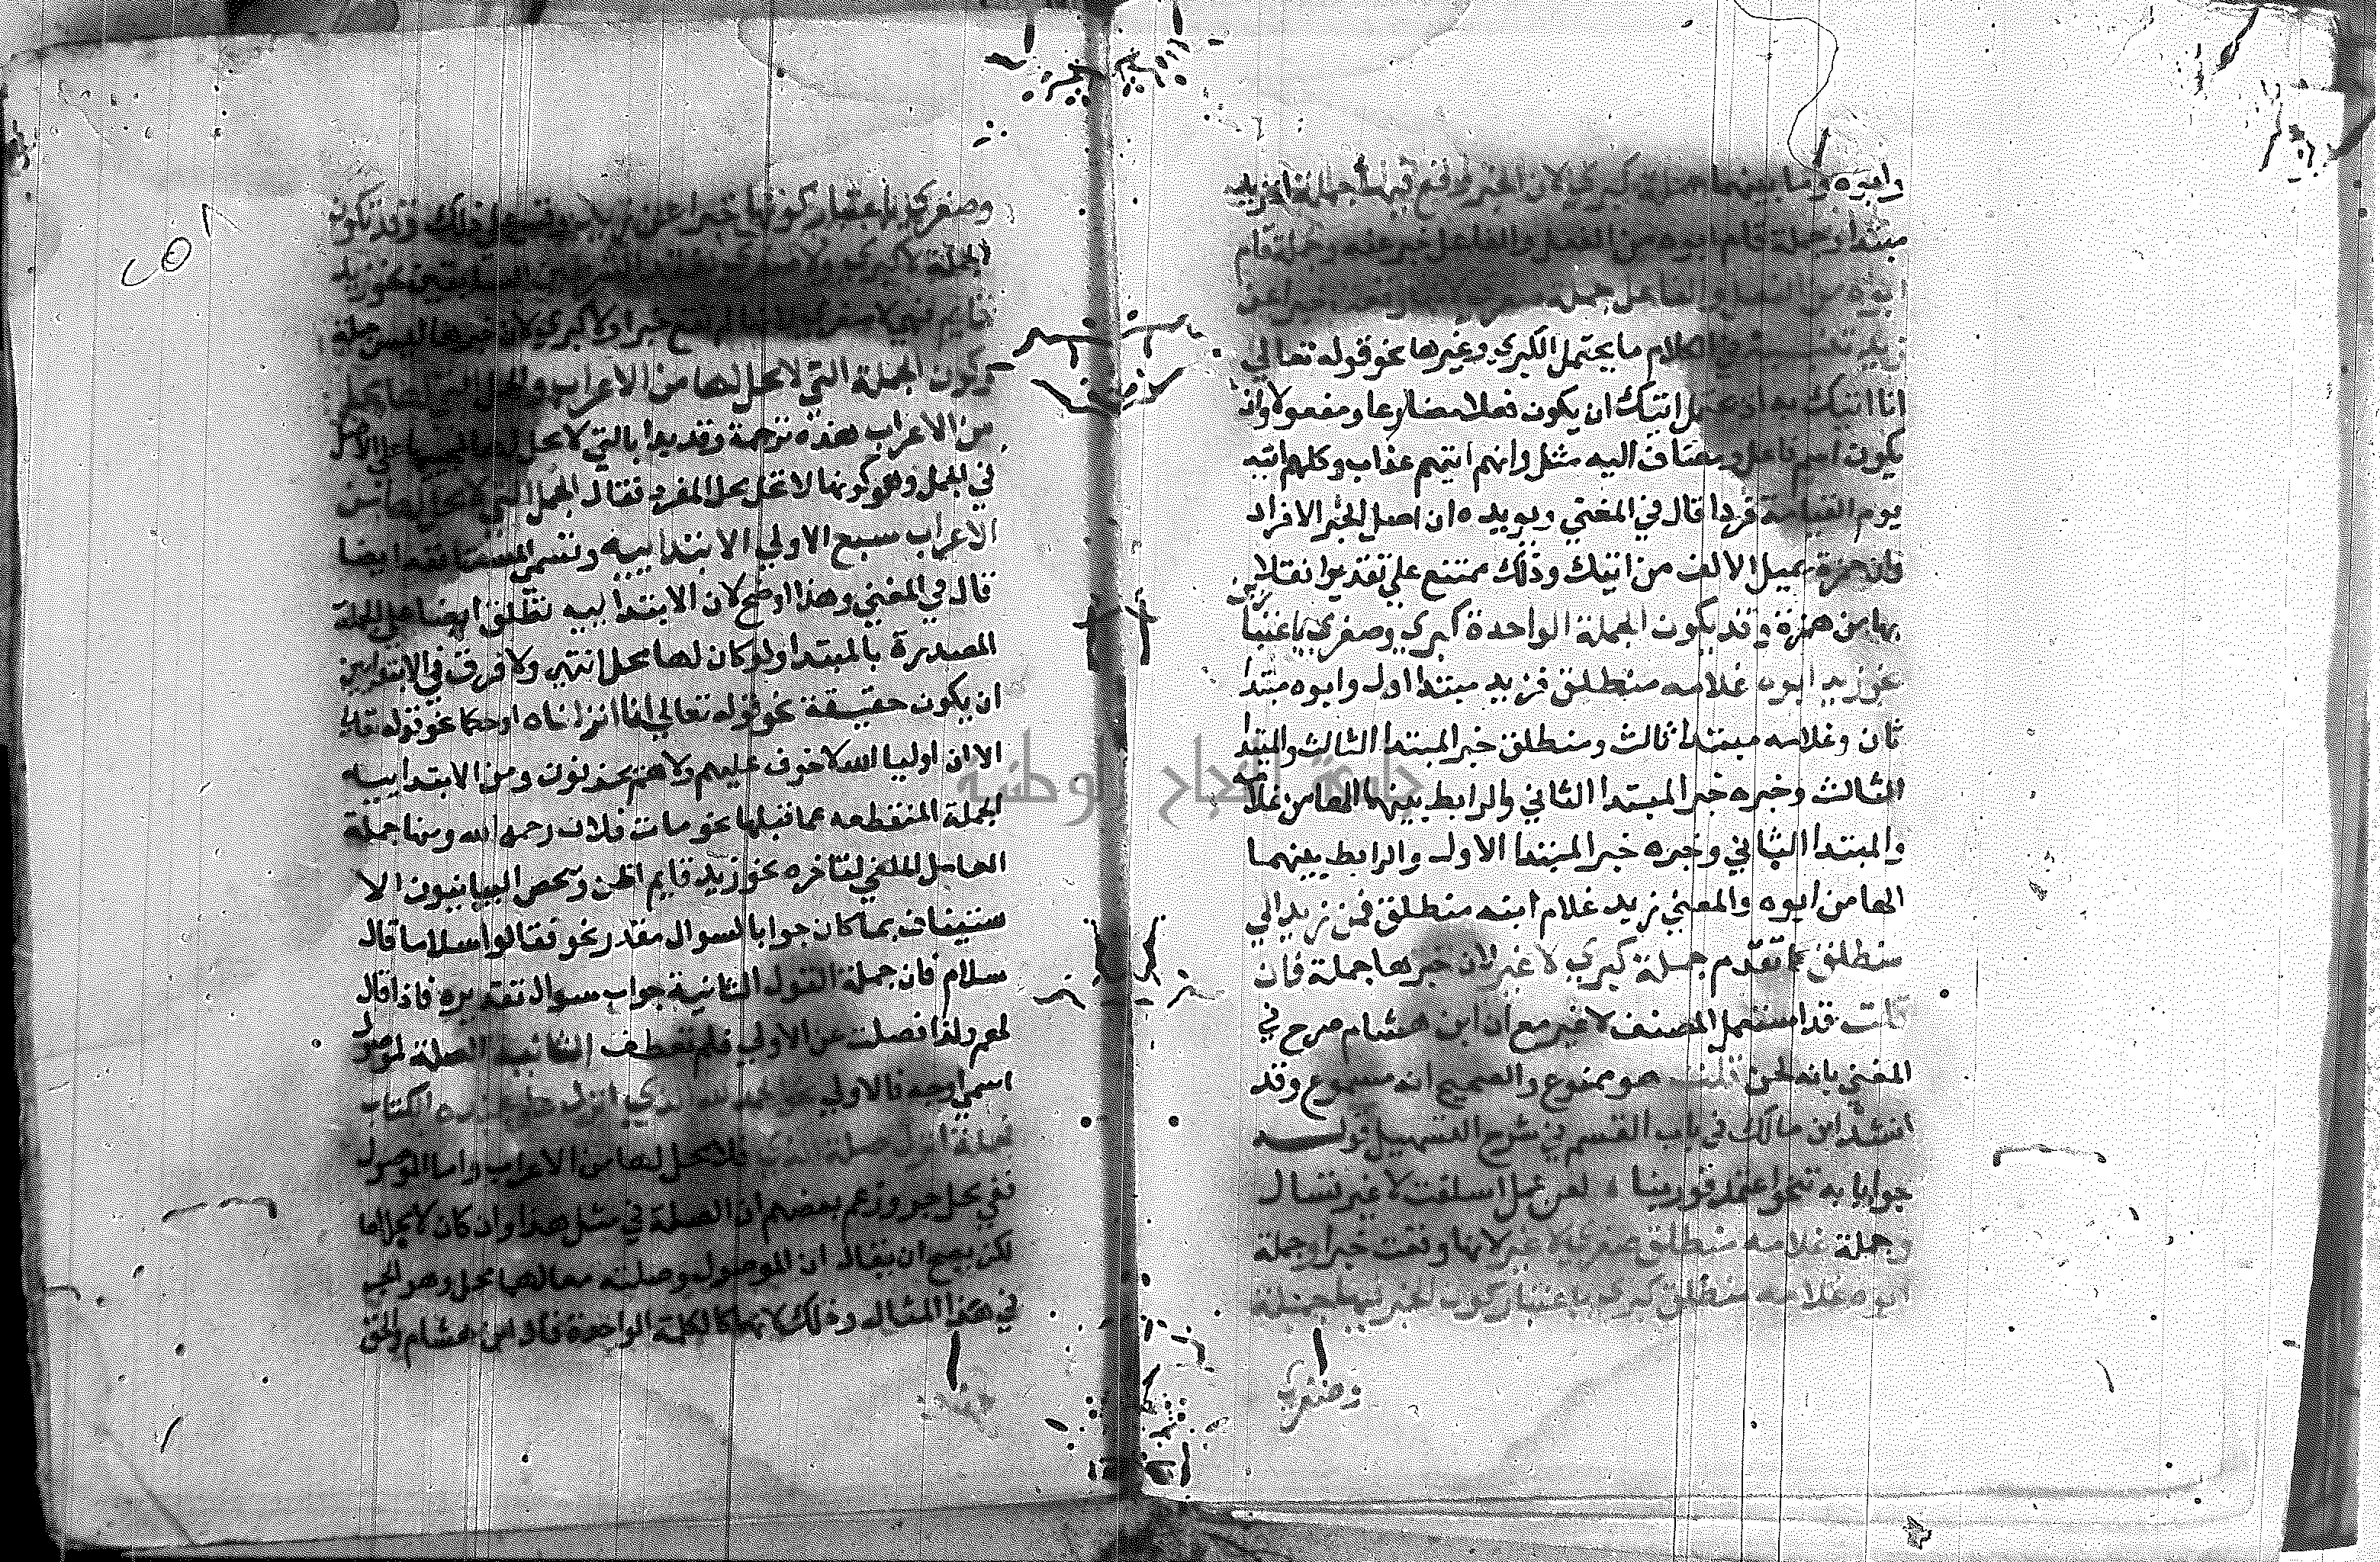 وابوه وما بينهما جملة كبري لان الخبر وقع فيها جملة
مبتدا وجملة قام ابوه من الفعل والفاعل خبر عنه وجملة قام
ابوه من الفعل والفاعل جملة خبرا عن
زيد الكلام ما يحتمل الكبري وغيرها نحو قوله تعالي
انا اتيك به اذ يحتمل اتيك ان يكون فعلا مضارعا ومفعولا وان
يكون اسم فاعل ومضاف اليه مثل وانهم اتيهم عذاب وكلهم اتيه
يوم القيامة فردا قال في المغني ويويده ان اصل الخبر الافراد
وان حمزة يميل الالف من اتيك وذلك ممتنع علي تقدير انقلا
بها من همزة وقد يكون الجملة الواحدة كبري وصغري باعتبا رين
نحو زيد ابوه غلامه منطلق فزيد مبتدا اول وابوه مبتدا
ثان وغلامه مبتدا ثالث ومنطلق خبر المبتدا الثالث والمبتدا
الثالث وخبره خبر المبتدا الثاني والرابط بينهما الها من غلامه
والمبتدا الثاني وخبره خبر المبتدا الاول والرابط بينهما
الها من ابوه والمعني زيد غلام ابنه منطلق فمن زيد الي
منطلق كما تقدم جملة كبري لا غير لان خبرها جملة فان
قلت قد استعمل المصنف لا غير مع ان ابن هشام صرح في
المغني بانه لحن قلت هو ممنوع والصحيح انه مسموع وقد
انشد ابن مالك في باب القسم في شرح التسهيل قوله
جوابا به تنجو اعتمد فوربنا لعن عمل اسلفت لا غير تسال
وجملة غلامه منطلق صغري لا غير لانها وقعت خبرا وجملة
ابوه غلامه منطلق كبري باعتبار كون الخبر فيها جملة
وصغري
وصغري باعتبار كونها خبرا عن زيد ذلك وقد تكون
الجملة لا كبري ولا صغري نحو زيد
قايم فهي لا صغري لانها لم تقع خبرا ولا كبري لان خبرها ليس جملة
وكون الجملة التي لا محل لها من الاعراب والجمل التي لها محل
من الاعراب هذه ترجمة وقد بدا بالتي لا محل لها لمجييها علي الاصل
في الجمل وهو كونها لا تحل محل المفرد فقال الجمل التي لا محل لها من
الاعراب سبع الاولي الابتداييه وتسمي المستانفة ايضا
قال في المغني وهذا اوضح لان الابتداييه تطلق ايضا علي الجملة
المصدرة بالمبتدا ولو كان لها محل انتهي ولا فرق في الابتدا بين
ان يكون حقيقة نحو قوله تعالي انا انزلناه او حكما نحو قوله تعالي
الا ان اوليا الله لا خوف عليهم ولا هم يحزنون ومن الابتداييه
الجملة المنقطعه عما قبلها نحو مات فلان رحمه الله ومنها جملة
العامل الملغي لتاخره نحو زيد قايم اظن وخص البيانيون الا
ستيناف بما كان جوابا لسوال مقدر نحو فقالوا سلاما قال
سلام فان جملة القول الثانية جواب سوال تقديره فاذا قال
لهم ولذا فصلت عن الاولي فلم تعطف الثانية الصلة لموصول
اسمي فالاولي نحو الحمد لله الذي انزل علي عبده الكتاب
فجملة انزل صلة الذي فلا محل لها من الاعراب واما الموصول
ففي محل جر وزعم بعضهم ان الصلة في مثل هذا وان كان لا محل لها
لكن يصح ان يقال ان الموصول وصلته معا لهما محل وهو الجر
في هذا المثال وذلك لانهما كالكلمة الواحدة قال ابن هشام والحق
جامعة النجاح الوطنية